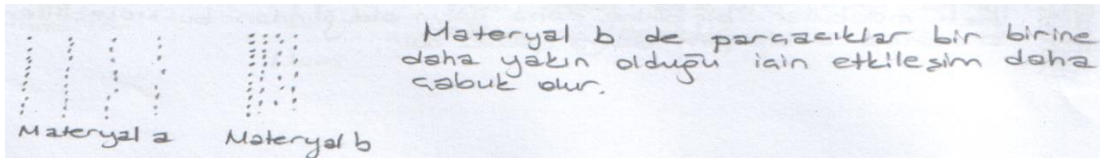 Materyal b de parçacıklar bir birine
daha yakın olduğu için etkileşim daha
çabuk olur.
Materyal a
Materyal b